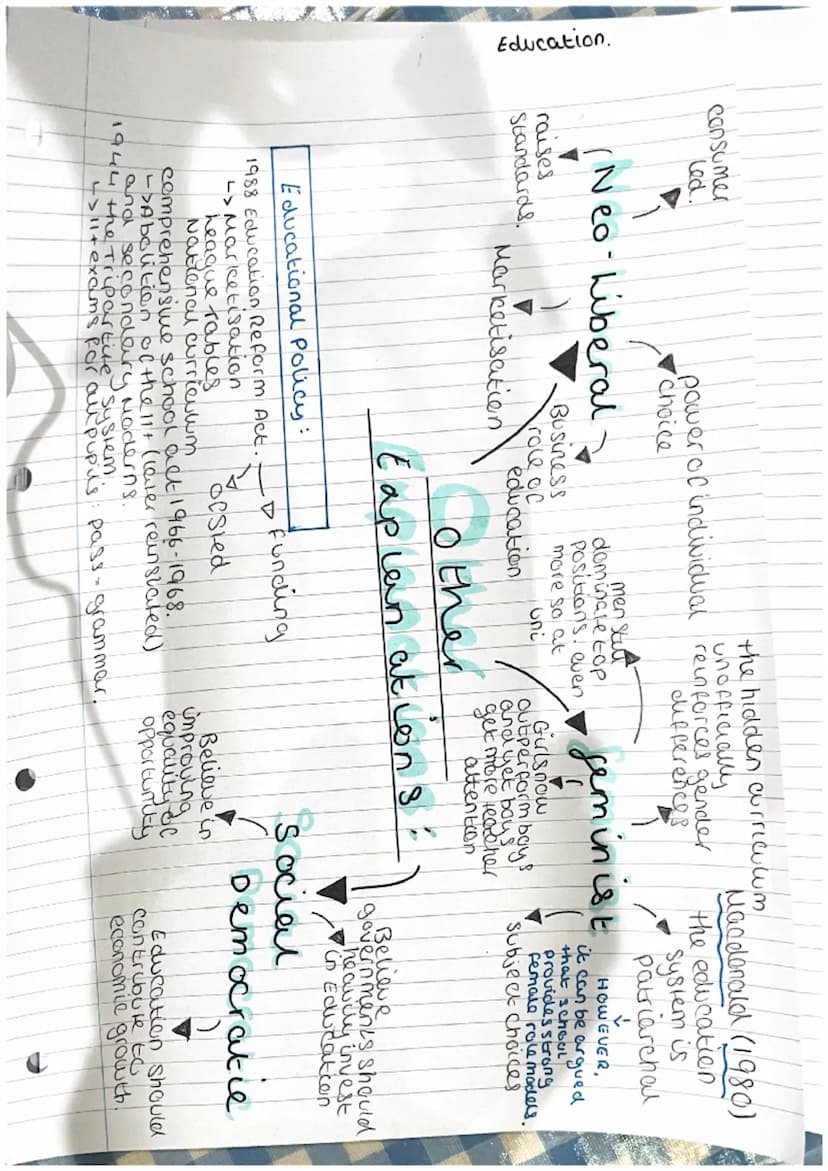 Education.
consumer
led.
power of individual
choice
raises
standards.
Neo-Liberal
Marketisation
Business
role of
education
the hidden curriculum
unofficially
reinforces gender
differences
Macdonald (1980)
the education
system is
patriarchal
men still
dominate top
positions. even
more so at
uni
feminist
HOWEVER,
it can be argued
that school
provides strong
female role models.
Girls now
outperform boys
and yet boys
get more teacher
attention
Subject choices
Other
Explanations:
Educational Policy:
1988 Education Reform Act.
↳ Marketisation
League Tables
National curriculum
Funding
Ofsted
comprehensive school act 1966-1968.
↳ Abolition of the 11+ (later reinstated)
and secondary moderns.
1944 the Tripartite system
↳ 11+ exams for all pupils: pass = grammar.
Social
Democratic
Believe
governments should
heavily invest
in Education
Believe in
improving
equality of
opportunity
Education should
contribute to
economic growth.